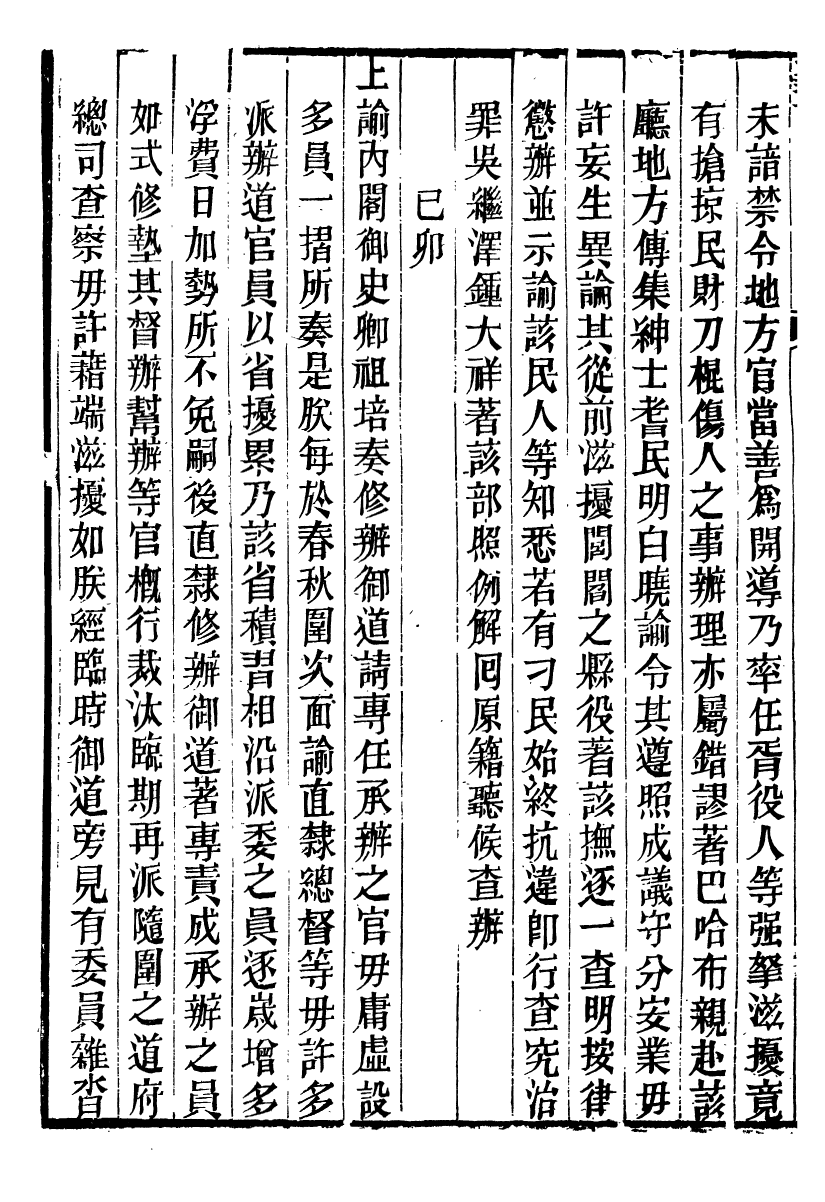 未諳禁令地方官當善爲開導乃率任胥役人等强拏滋擾竟
有搶掠民財刀棍傷人之事辦理亦屬錯謬著巴哈布親赴該
廳地方傳集紳士耆民明白曉諭令其遵照成議守分安業毋
許妄生異論其從前滋擾閭閻之縣役著該撫逐一查明按律
懲辦並示諭該民人等知悉若有刁民始終抗違卽行查究治
罪吳繼澤鍾大祥著該部照例解囘原籍聽候查辦
己卯
上諭內閣御史卿祖培奏修辦御道請專任承辦之官毋庸虛設
多員一摺所奏是朕每於春秋圍次面諭直隸總督等毋許多
派辦道官員以省擾累乃該省積習相沿派委之員逐歲增多
浮費日加勢所不免嗣後直隸修辦御道著專責成承辦之員
如式修墊其督辦幫辦等官槪行裁汰臨期再派隨圍之道府
總司查察毋許藉端滋擾如朕經臨時御道旁見有委員雜沓